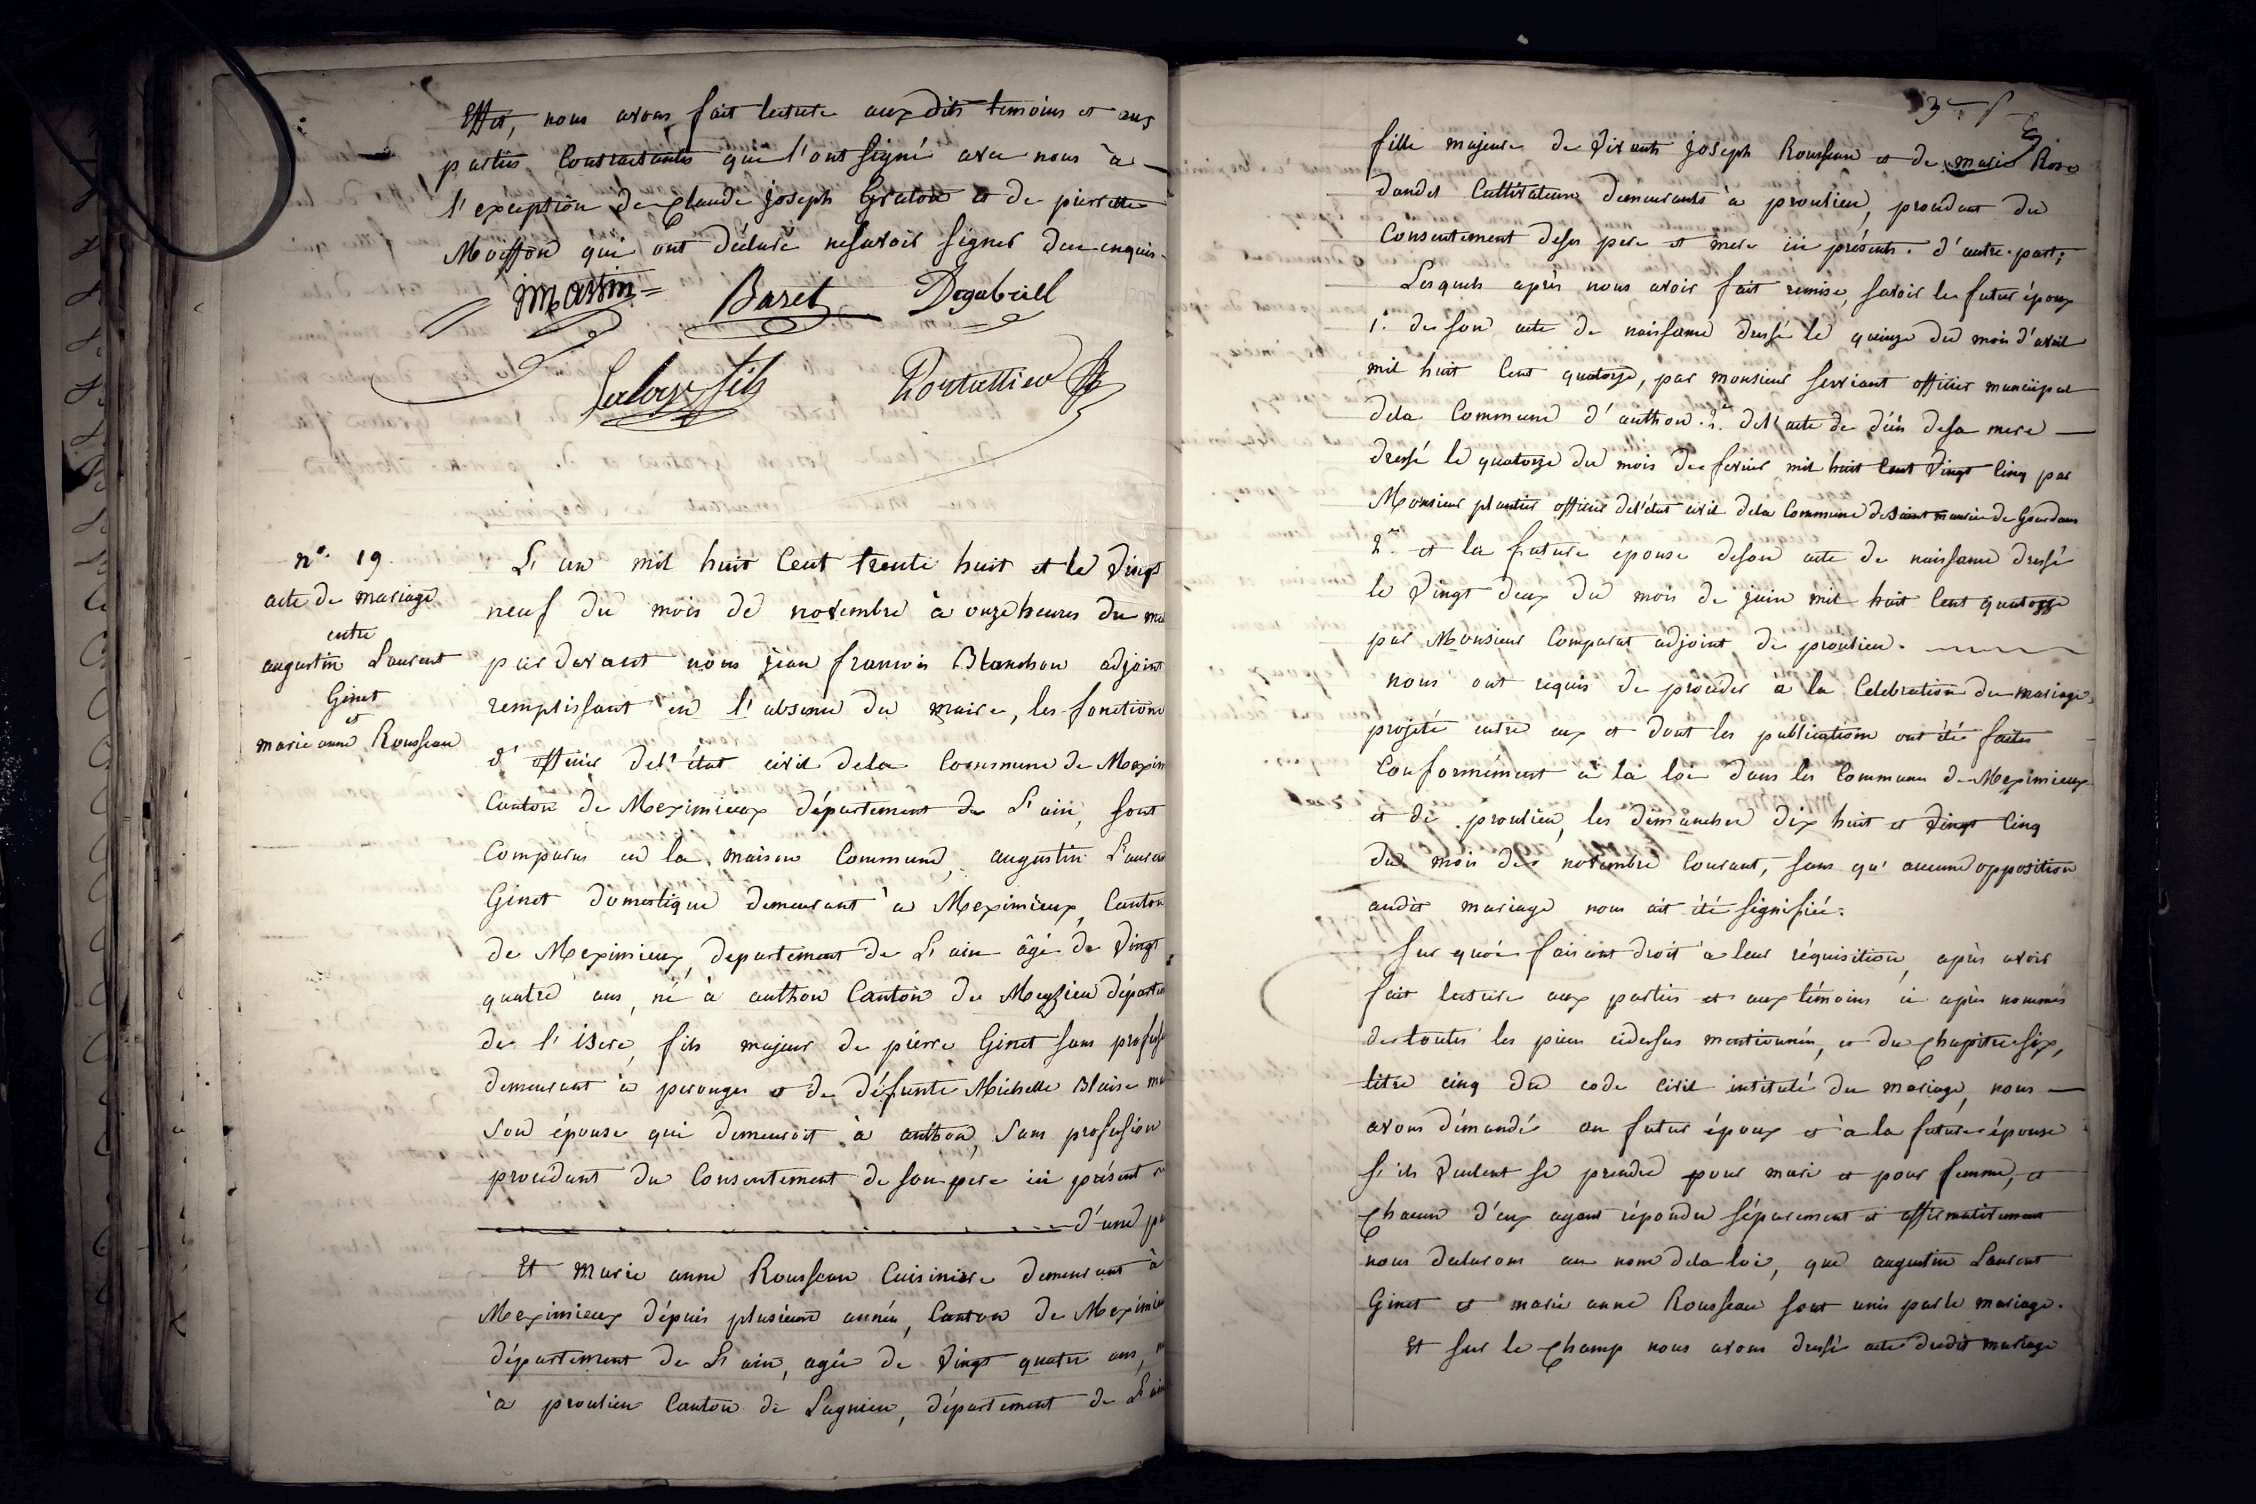 Effet, nous avons fait lecture aux dits temoins et aux
parties contractantes que l'ont signé avec nous à
l'exception de Claude joseph Graton et de pierrette
Moiffon qui ont déclaré nesavoir signer dece enquis.
Martin Baret Degabriell
fils
n°. 19.
acte de mariage
entre
augustin Laurent
Ginet
et
marie anne Rousseau
L'an mil huit Cent trente huit et le vingt
neuf du mois de novembre à onze heures du ma
pardevant nous jean francois Blanchon adjoint
remplissant en l'absence du maire, les fonctions
d'officier del'état civil dela Commune de Mexim
Canton de Meximieux département de L'ain, sont
comparus en la maison Commune, augustin Laurent
Ginet domestique demeurant à Meximieux, Canton
de Meximieux, departement de L'ain âgé de vingt
quatre ans, né à anthon Canton de Meyzieu départem
de l'isere, fils majeur de pierre Ginet sans profess
demeurant à perouges et de défunte Michelle Blaise
son épouse qui demeuroit à anthon, sans profession
procédant du Consentement de son pere ici présent
d'une pa
Et marie anne Rousseau Cuisiniere demeurant à
Meximieux dépuis plusieurs année, Canton de Meximieu
département de L'ain, agée de vingt quatre ans, n
à proulieu Canton de Lagnieu, département de L'ain
3
fille majeure de vivants joseph Rousseau et de marie Rose
dandel Cultivateurs demeurants à proulieu, procédant du
Consentement deses pere et mere ici présents. d'autre part;
Lesquels après nous avoir fait remise, savoir le futur époux
1.° de son acte de naissance dressé le quinze du mois d'avril
mil huit Cent quatorze, par monsieur Serviant officier municipal
dela Commune d'anthon. 2.° del'acte de décès desa mere
dressé le quatorze du mois de fevrier mil huit Cent vingt Cinq par
Monsieur plantier officier del'état civil dela Commune de Saint maurice de Gourdans
2.° et la future épouse deson acte de naissance dressé
le vingt deux du mois de juin mil huit Cent quatorze
par Monsieur Comparat adjoint de proulieu.
nous ont requis de procéder à la Celebration du mariage
projeté entre eux et dont les publications ont été faites
Conformément à la loi dans les Communes de Meximieux
et de proulieu, les dimanches dix huit et vingt Cinq
du mois de novembre Courant, sans qu'aucune opposition
audit mariage nous ait été signifiée:
Sur quoi faisant droit à leur réquisition, après avoir
fait lecture aux parties et aux témoins ci après nommés
de toutes les pieces cidessus mentionnées, et du chapitre six,
titre cinq du code civil intitulé du mariage, nous
avons démandé au futur époux et à la future épouse
s'ils veulent se prendre pour mari et pour femme, et
chacun d'eux ayant répondu séparement et affirmativement
nous declarons au nom dela loi, que augustin Laurent
Ginet et marie anne Rousseau sont unis par le mariage.
Et sur le champ nous avons dressé acte dudit mariage